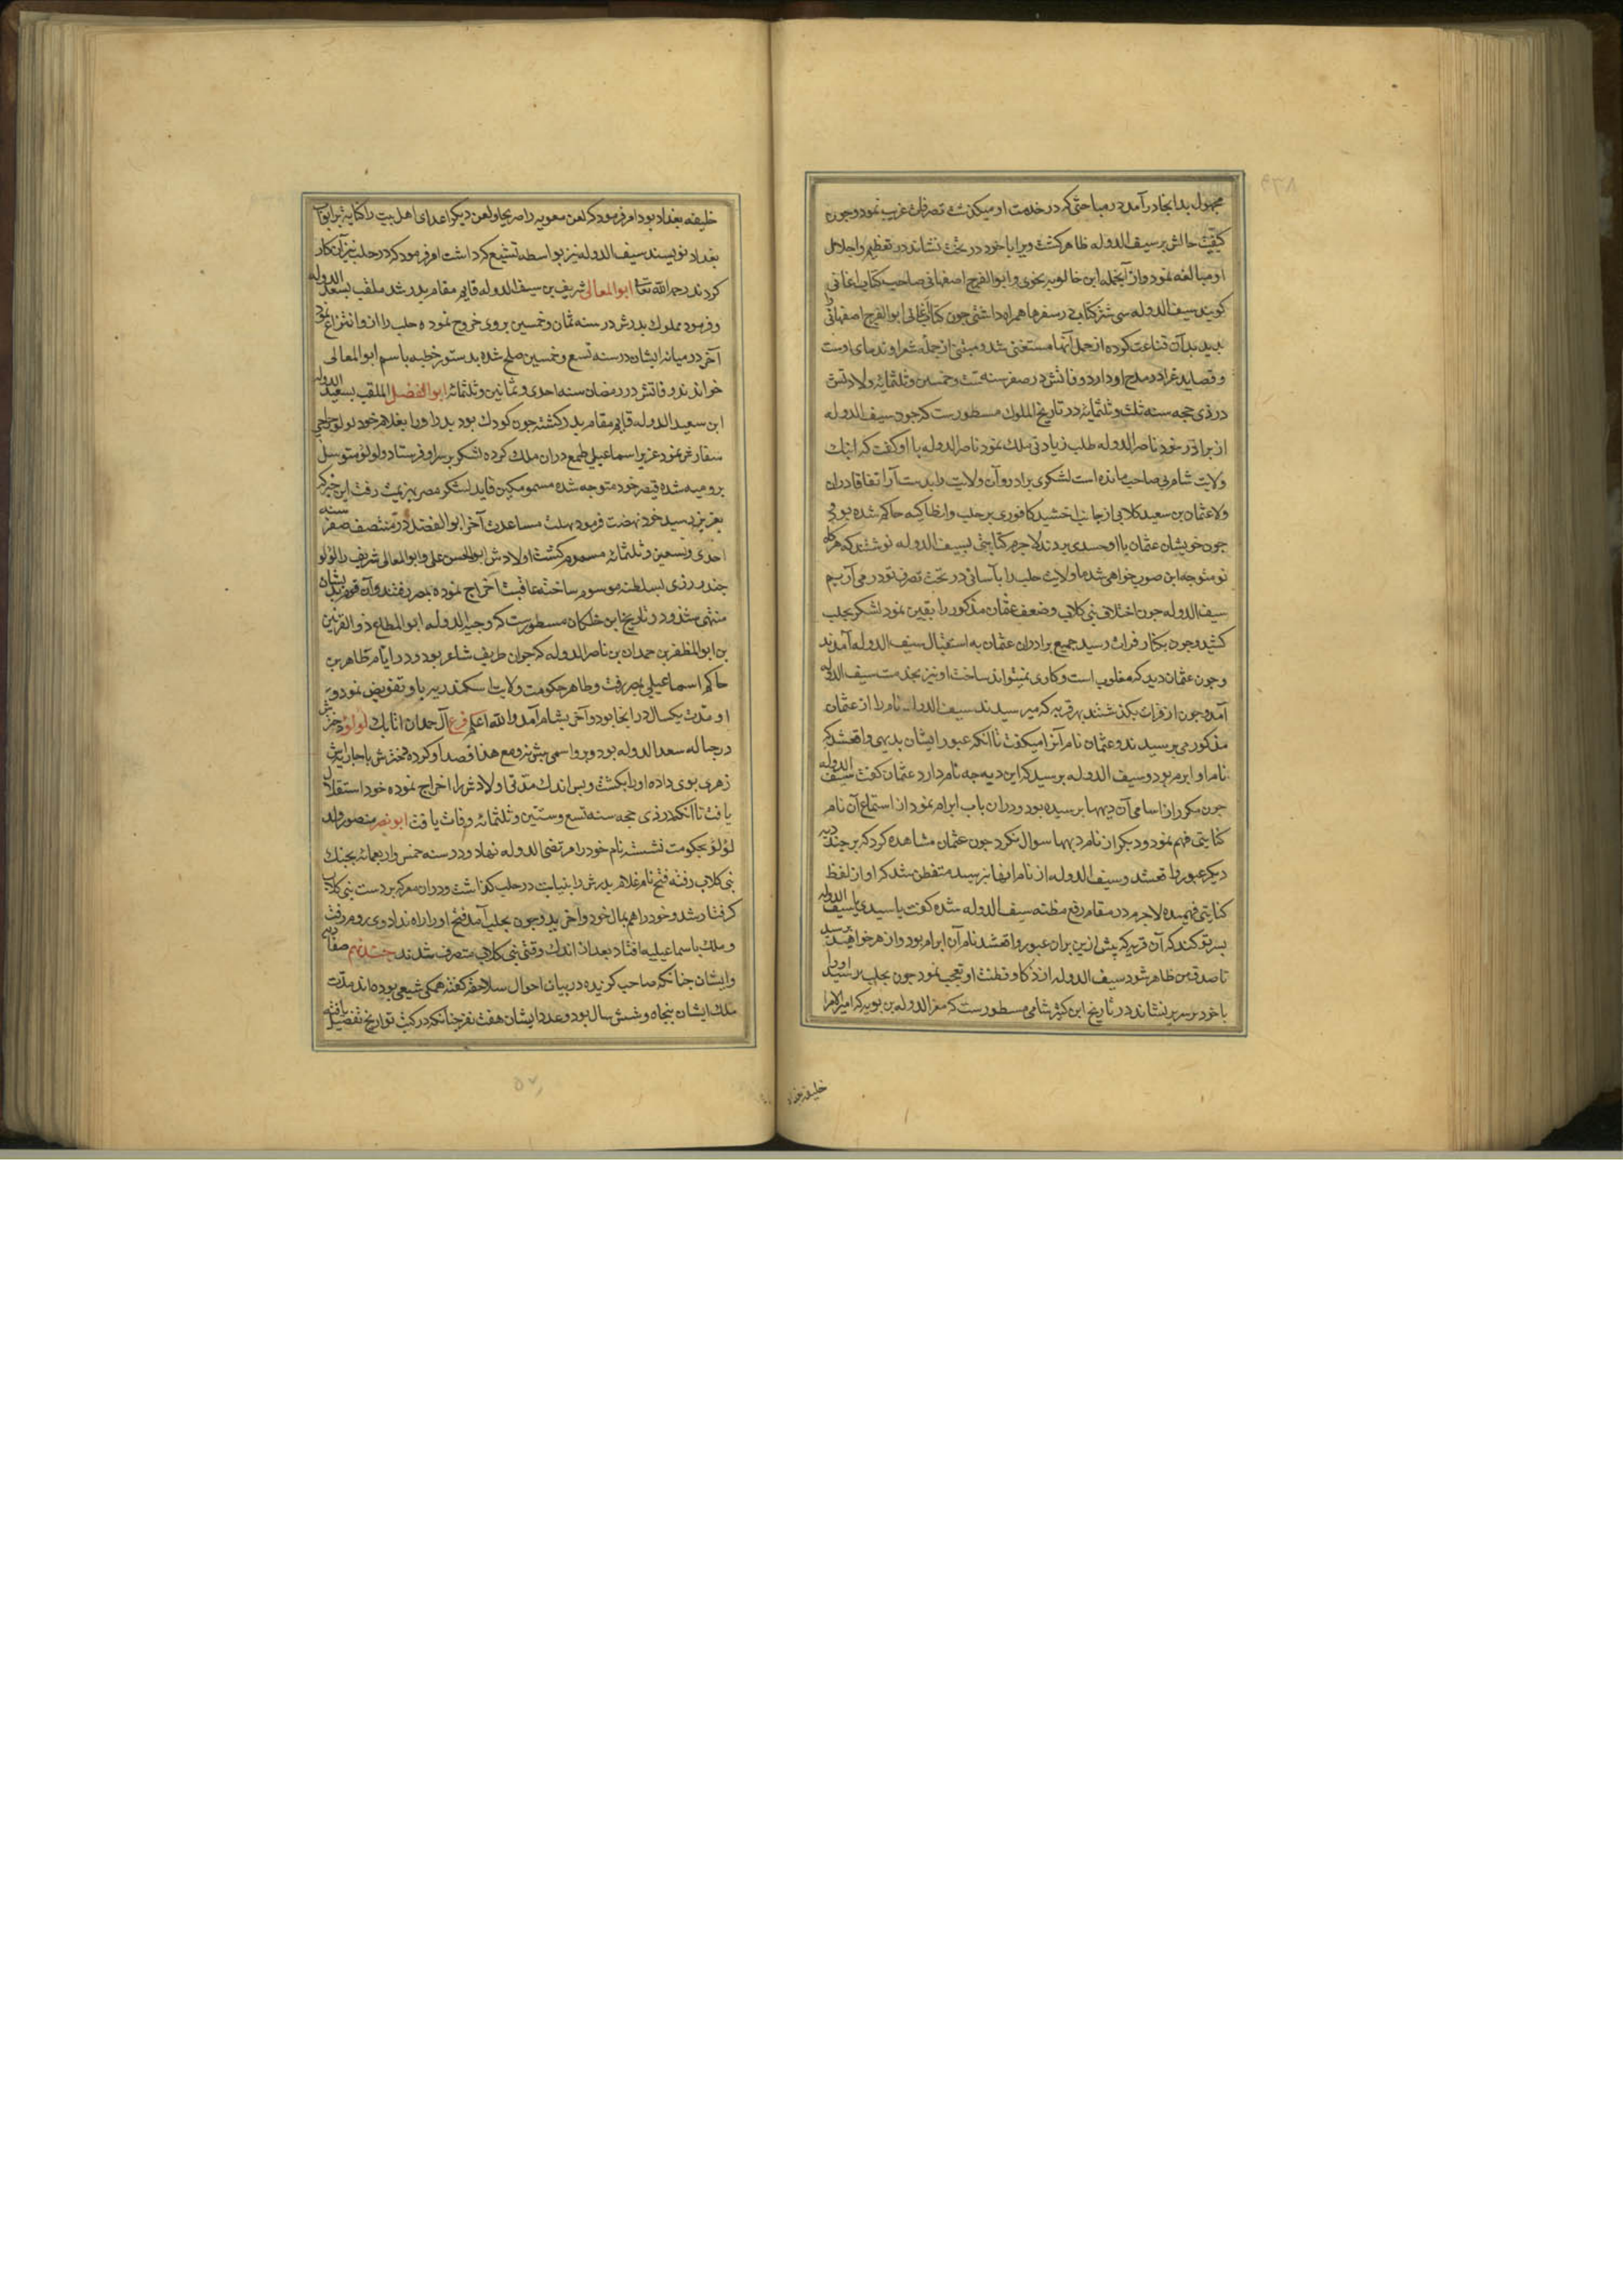 مجهول بدانجا درآمد در مباحثی که در خدمت او میکذشت تصرفات غریب نمود و چون
کیفیت حالش بر سیف الدوله ظاهر کشت ویرا با خود در تخت نشاند در تعظیم و اجلال
او مبالغه نمود و از آنجمله ابن خالویه نحوی و ابوالفرج اصفهانی صاحب کتاب اغانی
کویند سیف الدوله سی شتر کتاب در سفرها همراه داشتی چون کتاب اغانی ابوالفرج اصفهانی را
بدید بدان قناعت کرده از حمل آنها مستغنی شد و متنبی از جمله شعرا و ندمای اوست
و قصاید غرا در مدح او دارد وفاتش در صفر سنه ست و خمسین و ثلثمائه ولادتش
در ذی حجه سنه ثلث و ثلثمائه در تاریخ الملوک مسطورست که چون سیف الدوله
از برادر خود ناصر الدوله طلب زیادتی ملک نمود ناصر الدوله با او کفت که اینک
ولایت شام بی صاحب مانده است لشکری برادر و آن ولایت را بدست آر اتفاقا دران
ولا عثمان بن سعید کلابی از جانب اخشید کافوری بر حلب و انطاکیه حاکم شده بود
چون خویشان عثمان با او حسدی بردند لاجرم کتابتی بسیف الدوله نوشتند که هرکاه
تو متوجه این صوب خواهی شد ما ولایت حلب را بآسانی در تحت تصرف تو در می آریم
سیف الدوله چون اختلاف بنی کلاب و ضعف عثمان مذکور را یقین نمود لشکر بحلب
کشید و چون بکنار فرات رسید جمیع برادران عثمان به استقبال سیف الدوله آمدند
و چون عثمان دید که مغلوب است و کاری نمیتواند ساخت او نیز بخدمت سیف الدوله
آمد و چون از فرات بکذشتند بهر قریه که میرسیدند سیف الدوله نام را از عثمان
مذکور می پرسید و عثمان نام آنرا میکفت تا آنکه عبور ایشان بدیهی واقعشد که
نام او ابرم بود و سیف الدوله پرسید که این دیه چه نام دارد عثمان کفت سیف الدوله
چون مکرر از اسامی آن دیهها پرسیده بود و دران باب ابرام نمود از استماع آن نام
کنایتی فهم نمود و دیکر از نام دیهها سوال نکرد چون عثمان مشاهده کرد که بر چند دیه
دیکر عبور واقعشد و سیف الدوله از نام آنها نپرسید متفطن شد که او از لفظ
کنایتی فهمیده لاجرم در مقام رفع مظنه سیف الدوله شده کفت یا سیدی یا سیف الدوله
بسر تو کند که آن قریه که پیش ازین بران عبور واقعشد نام آن ابرام بود و از هر خواهید پرسید
تا صدق من ظاهر شود سیف الدوله از ذکا و فطنت او تعجب نمود چون بحلب رسید او را
با خود بر سریر بنشاند در تاریخ ابن کثیر شامی مسطورست که معز الدوله بن بویه که امیر الامرا
خلیفه بغداد
خلیفه بغداد بود امر فرمود که لعن معویه را صریحا و لعن دیکر اعدای اهل بیت را کنایة بر ابواب
بغداد نویسند سیف الدوله نیز بواسطه تشیع که داشت امر فرمود که در حلب نیز آن کار
کردند رحمه الله تعا ابوالمعالی شریف بن سیف الدوله قایم مقام پدر شد ملقب بسعد الدوله
و فرمود مملوک پدرش در سنه ثمان و خمسین بروی خروج نموده حلب را از او انتزاع نمود
آخر در میانه ایشان در سنه تسع و خمسین صلح شده بدستور خطبه باسم ابوالمعالی
خواندند وفاتش در رمضان سنه احدی و ثمانین و ثلثمائه ابوالفضل الملقب بسعید الدوله
ابن سعید الدوله قایم مقام پدر کشته چون کودک بود پدر او را بغلام خود لولو جراحی
سفارش نمود عزیز اسماعیلی طمع دران ملک کرده لشکر بر سر او فرستاد و لولو متوسل
برومیه شده قیصر خود متوجه شده مسمو مکین قاید لشکر مصر بهزیمت رفت این خبر که
بعزیز رسید خود نهضت فرمود مهلت مساعدت آخر ابوالفضل در منتصف صفر سنه
احدی و تسعین و ثلثمائه مسموم کشت اولادش ابوالحسن علی و ابوالمعالی شریف را لولو
چند روزی بسلطنت موسوم ساخته عاقبت اخراج نموده بمصر رفتند و آن قوم بدیشان
منتهی شد و در تاریخ ابن خلکان مسطورست که وجیه الدوله ابوالمطاع ذوالقرنین
بن ابوالمظفر بن حمدان بن ناصر الدوله که جوان ظریف شاعر بود و در ایام ظاهر بن
حاکم اسماعیلی بمصر رفت و ظاهر حکومت ولایت اسکندریه باو تفویض نمود و
او مدت یکسال در انجا بود و آخر بشام آمد والله اعلم فرع آل حمدان اتابک لولو دخترش
در حباله سعد الدوله بود و برو اسمی بیش نه و مع هذا قصد او کرده دخترش با جاریه اش
زهری بوی داده او را بکشت و پس اندک مدتی اولادش را اخراج نموده خود استقلال
یافت تا آنکه در ذی حجه سنه تسع و ستین و ثلثمائه وفات یافت ابو نصر منصور ولد
لؤلؤ بحکومت نشسته نام خود را مرتضی الدوله نهاد و در سنه خمس و اربعمائه بجنک
بنی کلاب رفته فتح نام غلام پدرش را بنیابت در حلب کذاشت و دران معرکه بر دست بنی کلاب
کرفتار شد و خود را هم بمال خود واخرید و چون بحلب آمد فتح او را راه نداد وی بروم رفت
و ملک باسماعیلیه افتاد بعد از اندک وقتی بنی کلاب متصرف شدند
و ایشان چنانکه صاحب کزیده در بیان احوال سلاجقه کفته همکی شیعی بوده اند مدت
ملک ایشان پنجاه و شش سال بود و عدد ایشان هفت نفر چنانکه در کتب تواریخ تفصیل یافته